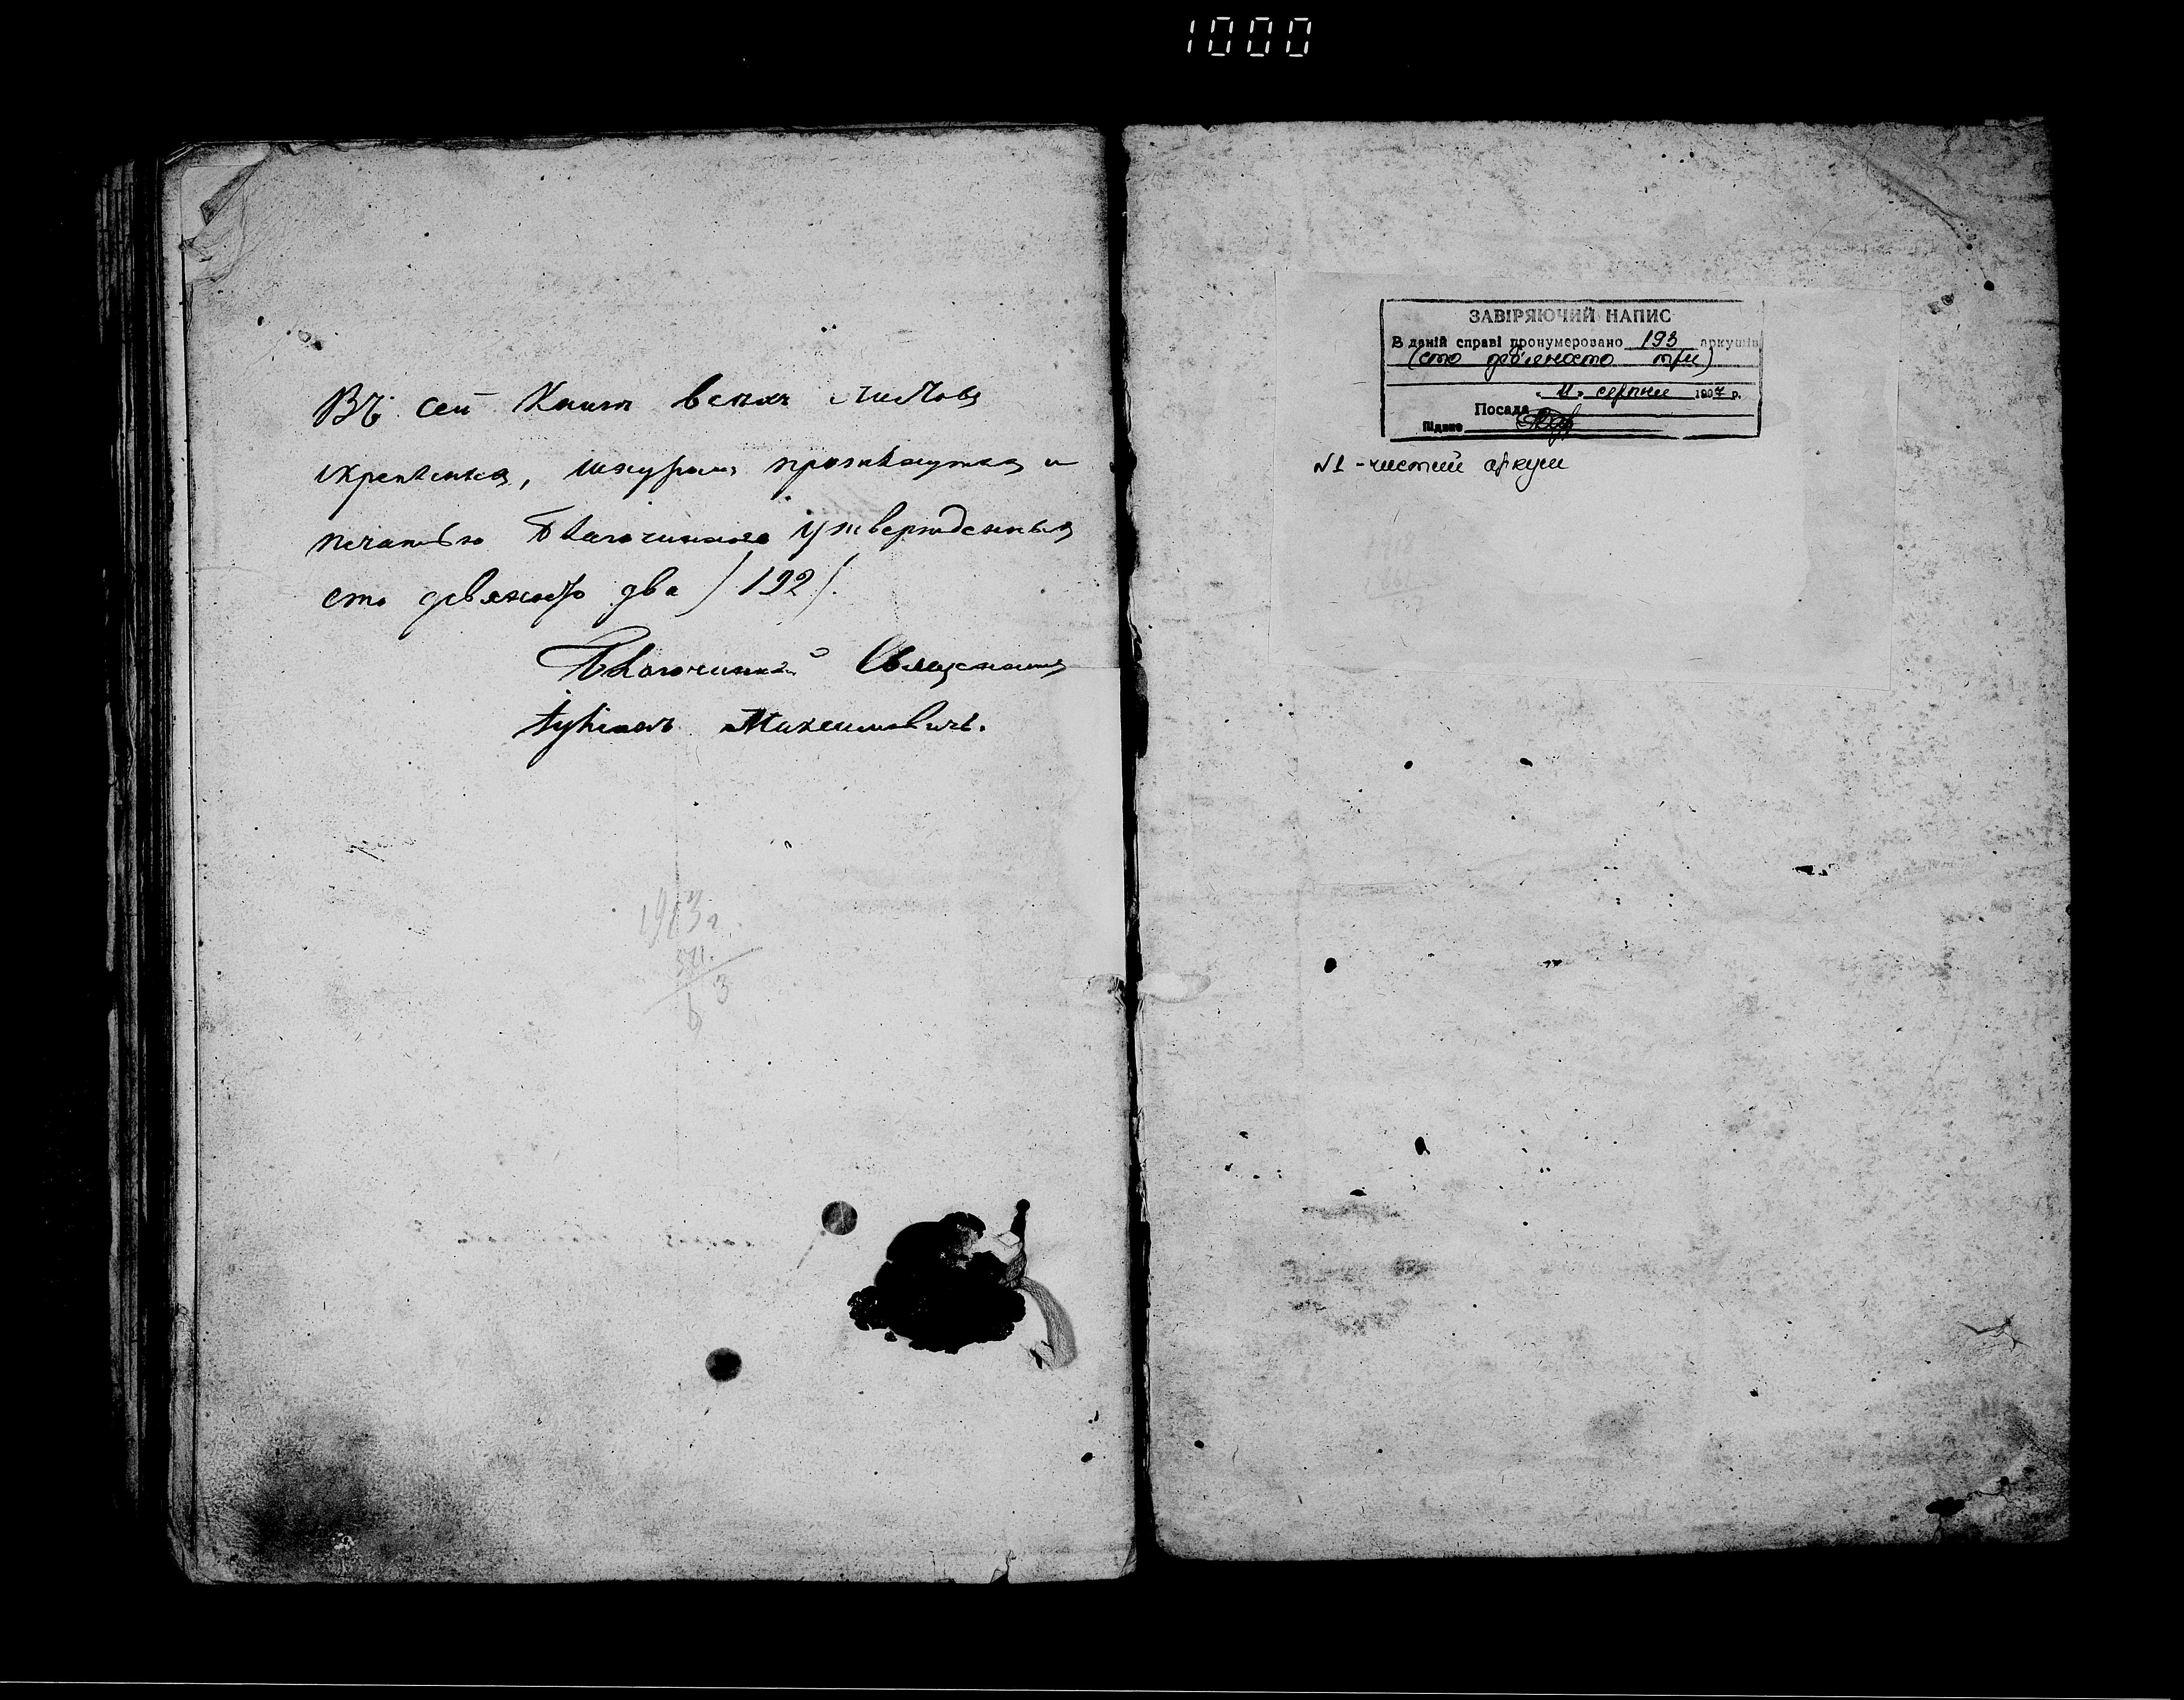 1000
Въ сей Книгѣ всѣхъ листовъ
скрѣпленныхъ, шнуромъ пронумерованныхъ и
печатью Благочиннаго утвержденныхъ
сто девяносто два /192/.
Благочинный Священникъ
Максимовичъ.
1913 г
3
ЗАВІРЯЮЧИЙ НАПИС
В даній справі пронумеровано 193 аркушів
(сто дев'яносто три)
"11" серпня 1997 р.
Посада
Підпис
№1 - чистий аркуш